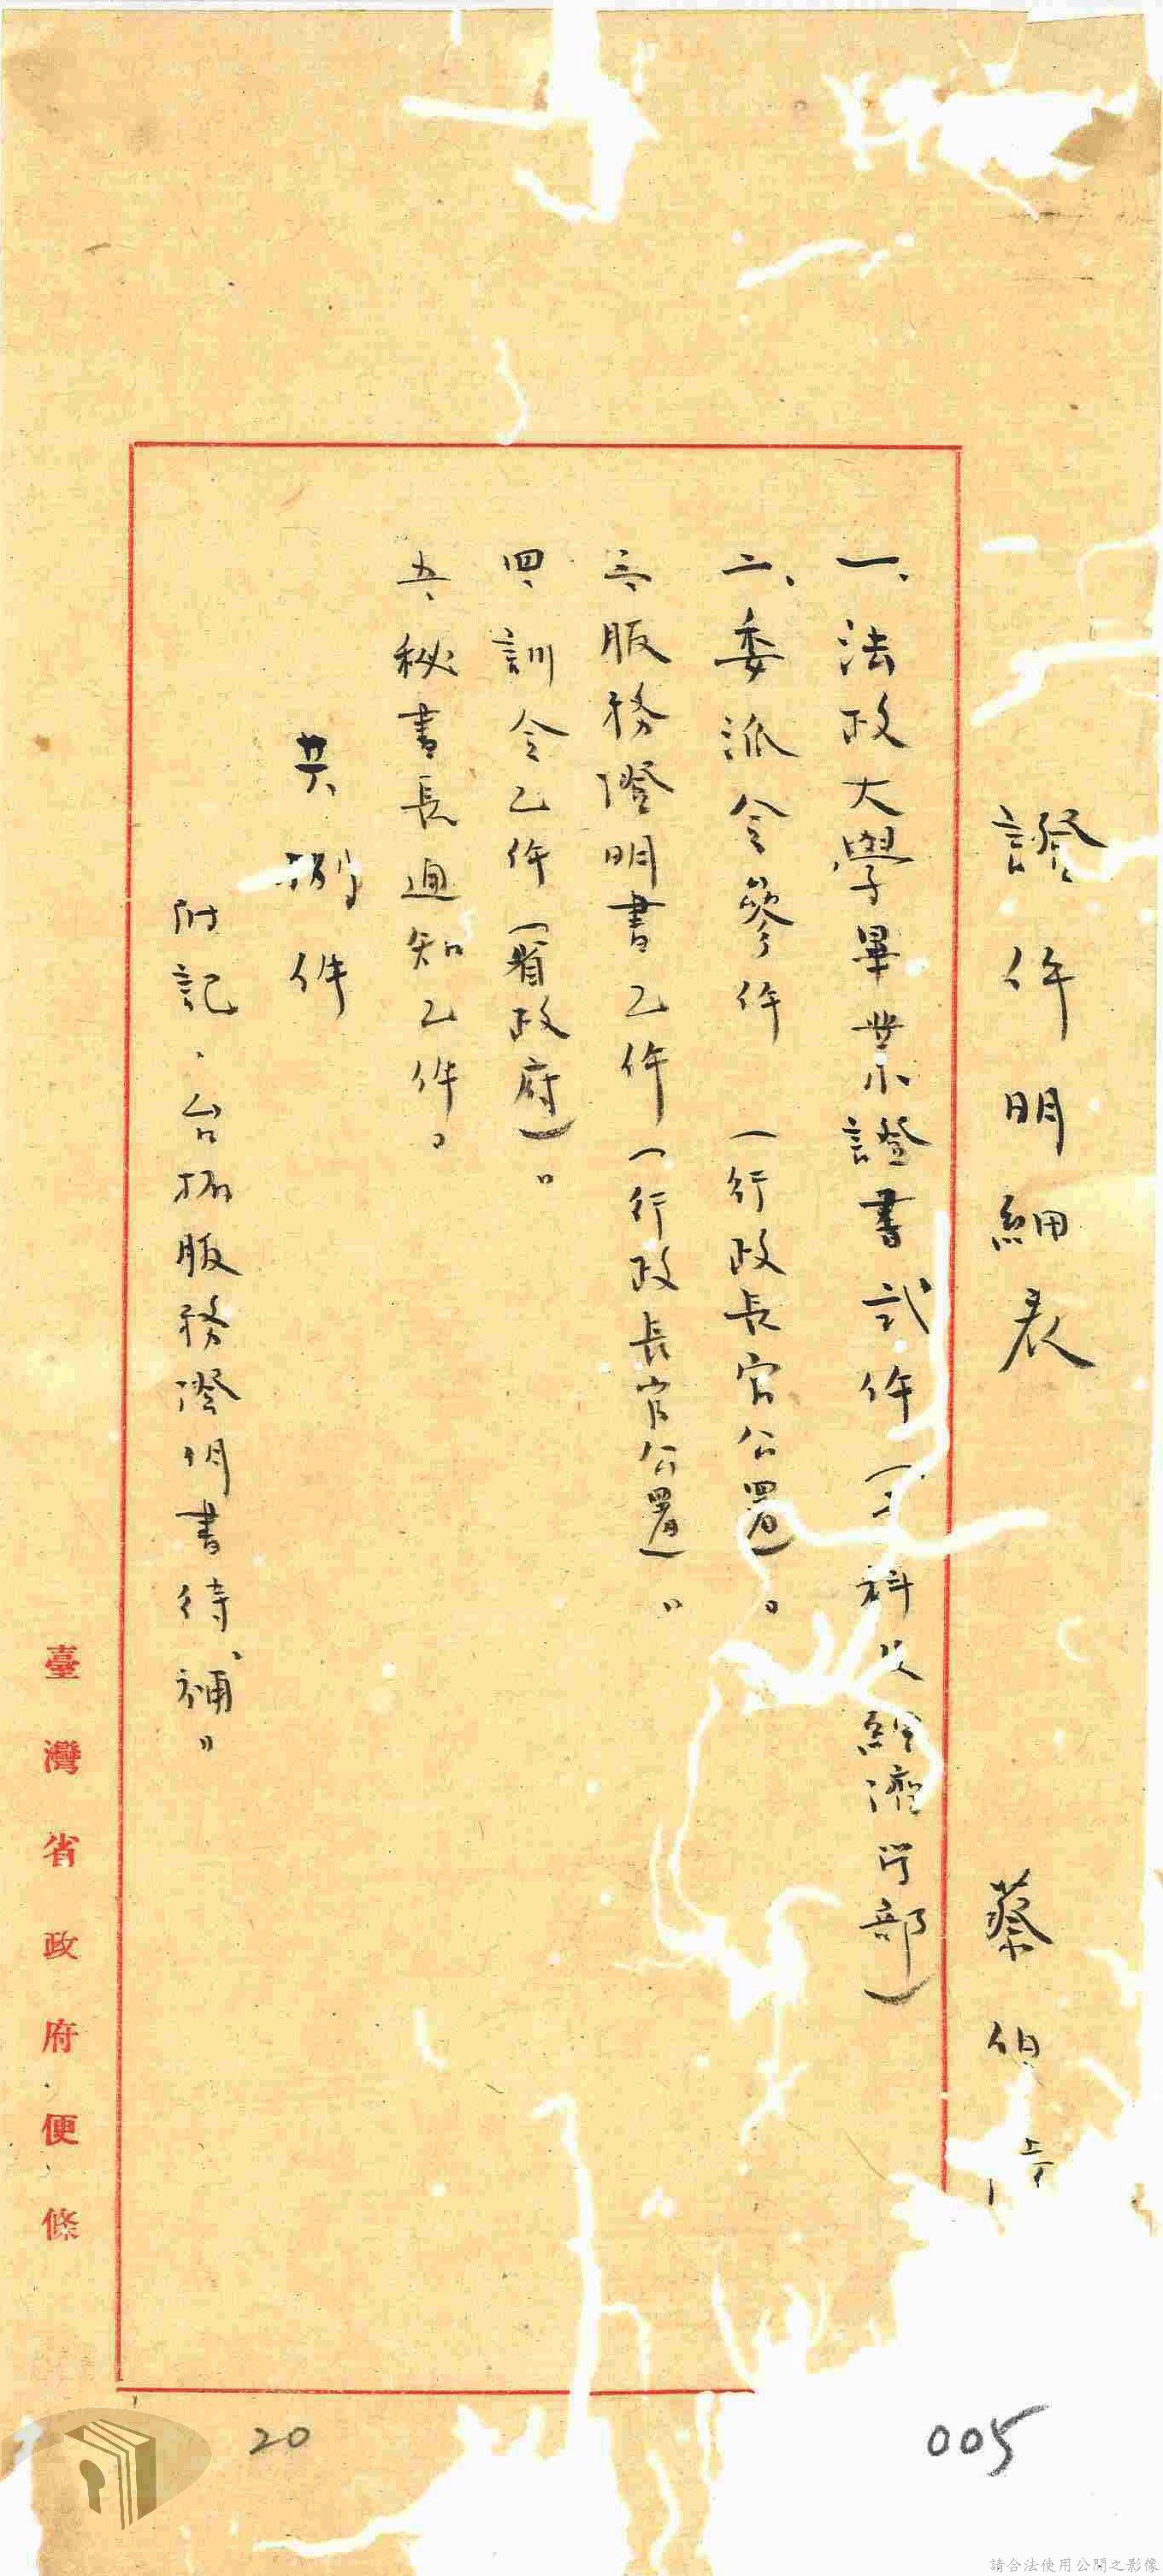 證件明細表　蔡伯
一、法政大學畢業證書弍件（　科及經濟學部）
二、委派令參件（行政長官公署）。
三、服務證明書乙件（行政長官公署）。
四、訓令乙件（省政府）。
五、秘書長通知乙件。
共捌件
附記、台拓服務證明書待補。
臺灣省政府便條
20
005
請合法使用公開之影像